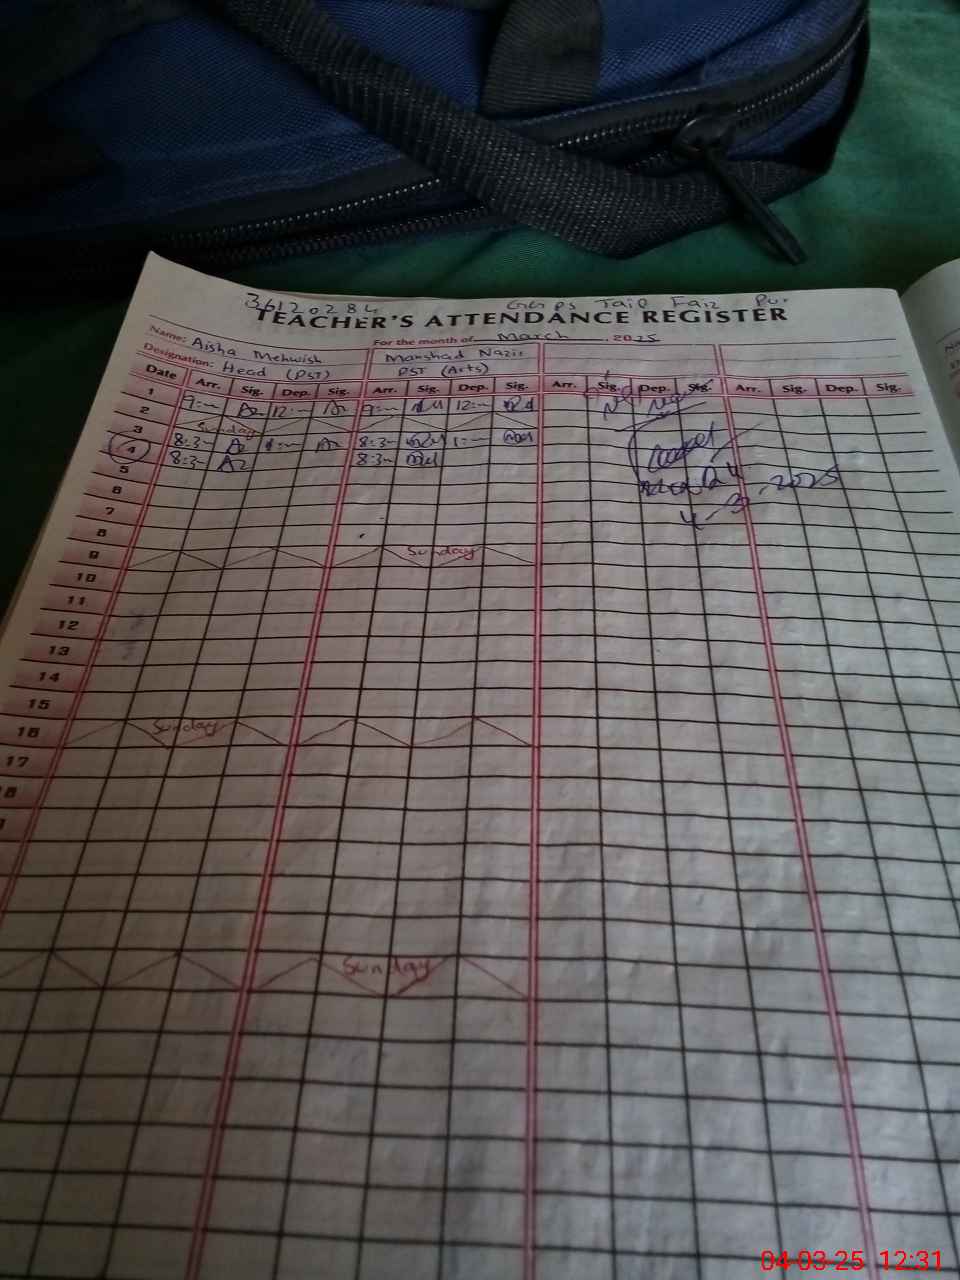 36120284 GGPS Tail Faiz Pur
TEACHER'S ATTENDANCE REGISTER
For the month of March, 2025
Name: Aisha Mehwish Manshad Nazir
Designation: Head (PST) PST (Arts)
Date Arr. Sig. Dep. Sig. Arr. Sig. Dep. Sig. Arr. Sig. Dep. Sig. Arr. Sig. Dep. Sig.
1 9:— 12:— 9:— 12:—
2 Sunday
3 8:3— 1:— 8:3— 1:—
4 8:3— 8:3—
4-3-2025
5
6
7
8
9 Sunday
10
11
12
13
14
15
16 Sunday
17
18
Sunday
04-03-25 12:31